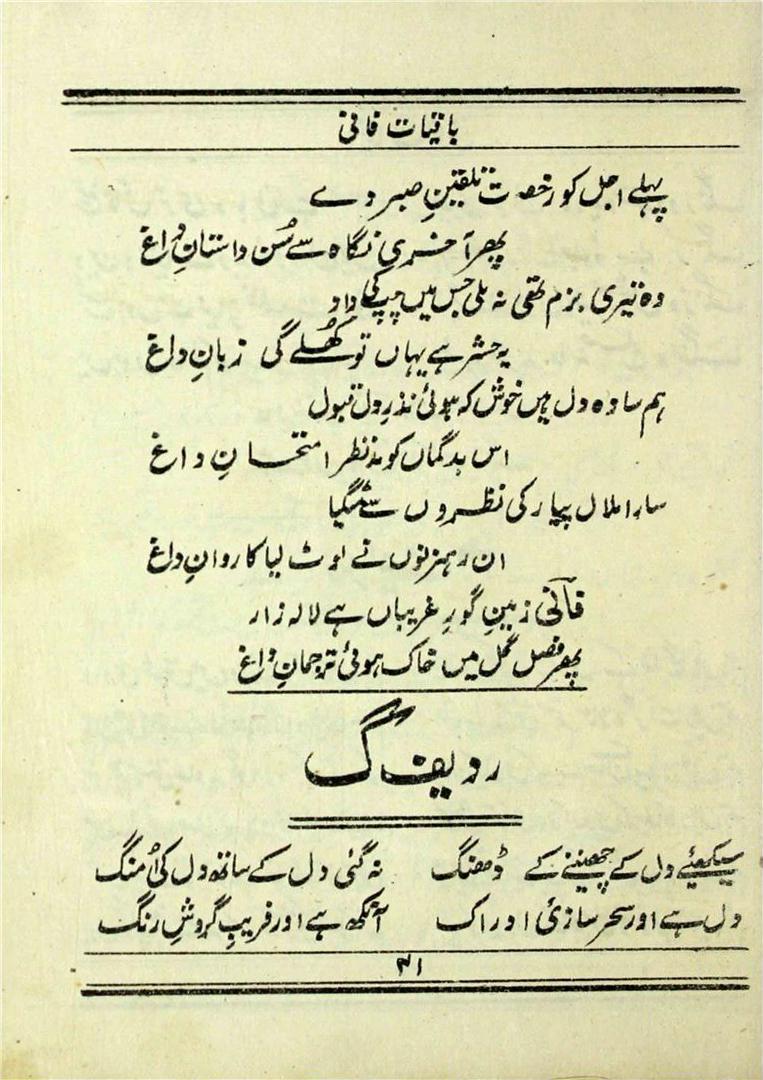 باقیات فانی
پہلے اجل کو رخصت تلقینِ صبر دے
پھر آخری نگاہ سے سُن داستانِ داغ
وہ تیری بزم تھی نہ ملی جس میں چپ کی داد
یہ حشر ہے یہاں تو کھُلے گی زبانِ داغ
ہم سادہ دل ہیں خوش کہ ہوئی نذرِ دل قبول
اس بدگماں کو مدنظر امتحانِ داغ
سارا ملال پیار کی نظروں سے مٹ گیا
ان رہزنوں نے لوٹ لیا کاروانِ داغ
فانی زمینِ گورِ غریباں ہے لالہ زار
پھر فصل گل میں خاک ہوئی ترجمانِ داغ
ردیف گ
سیکھئے دل کے چھیننے کے ڈھنگ نہ گئی دل کے ساتھ دل کی اُمنگ
دل ہے اور سحر سازیٔ ادراک آنکھ ہے اور فریبِ گردشِ رنگ
۳۱